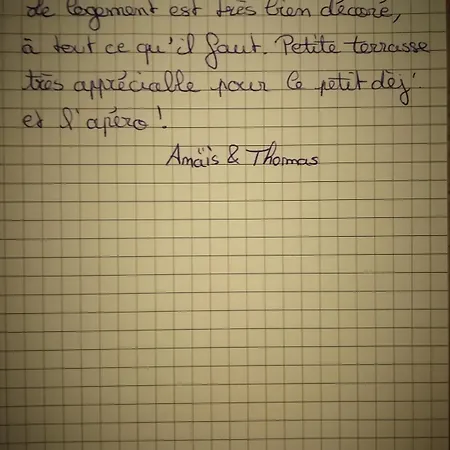 de logement est très bien décoré,
à tout ce qu'il faut. Petite terrasse
très appréciable pour le petit déj'
et l'apéro !
Anaïs & Thomas